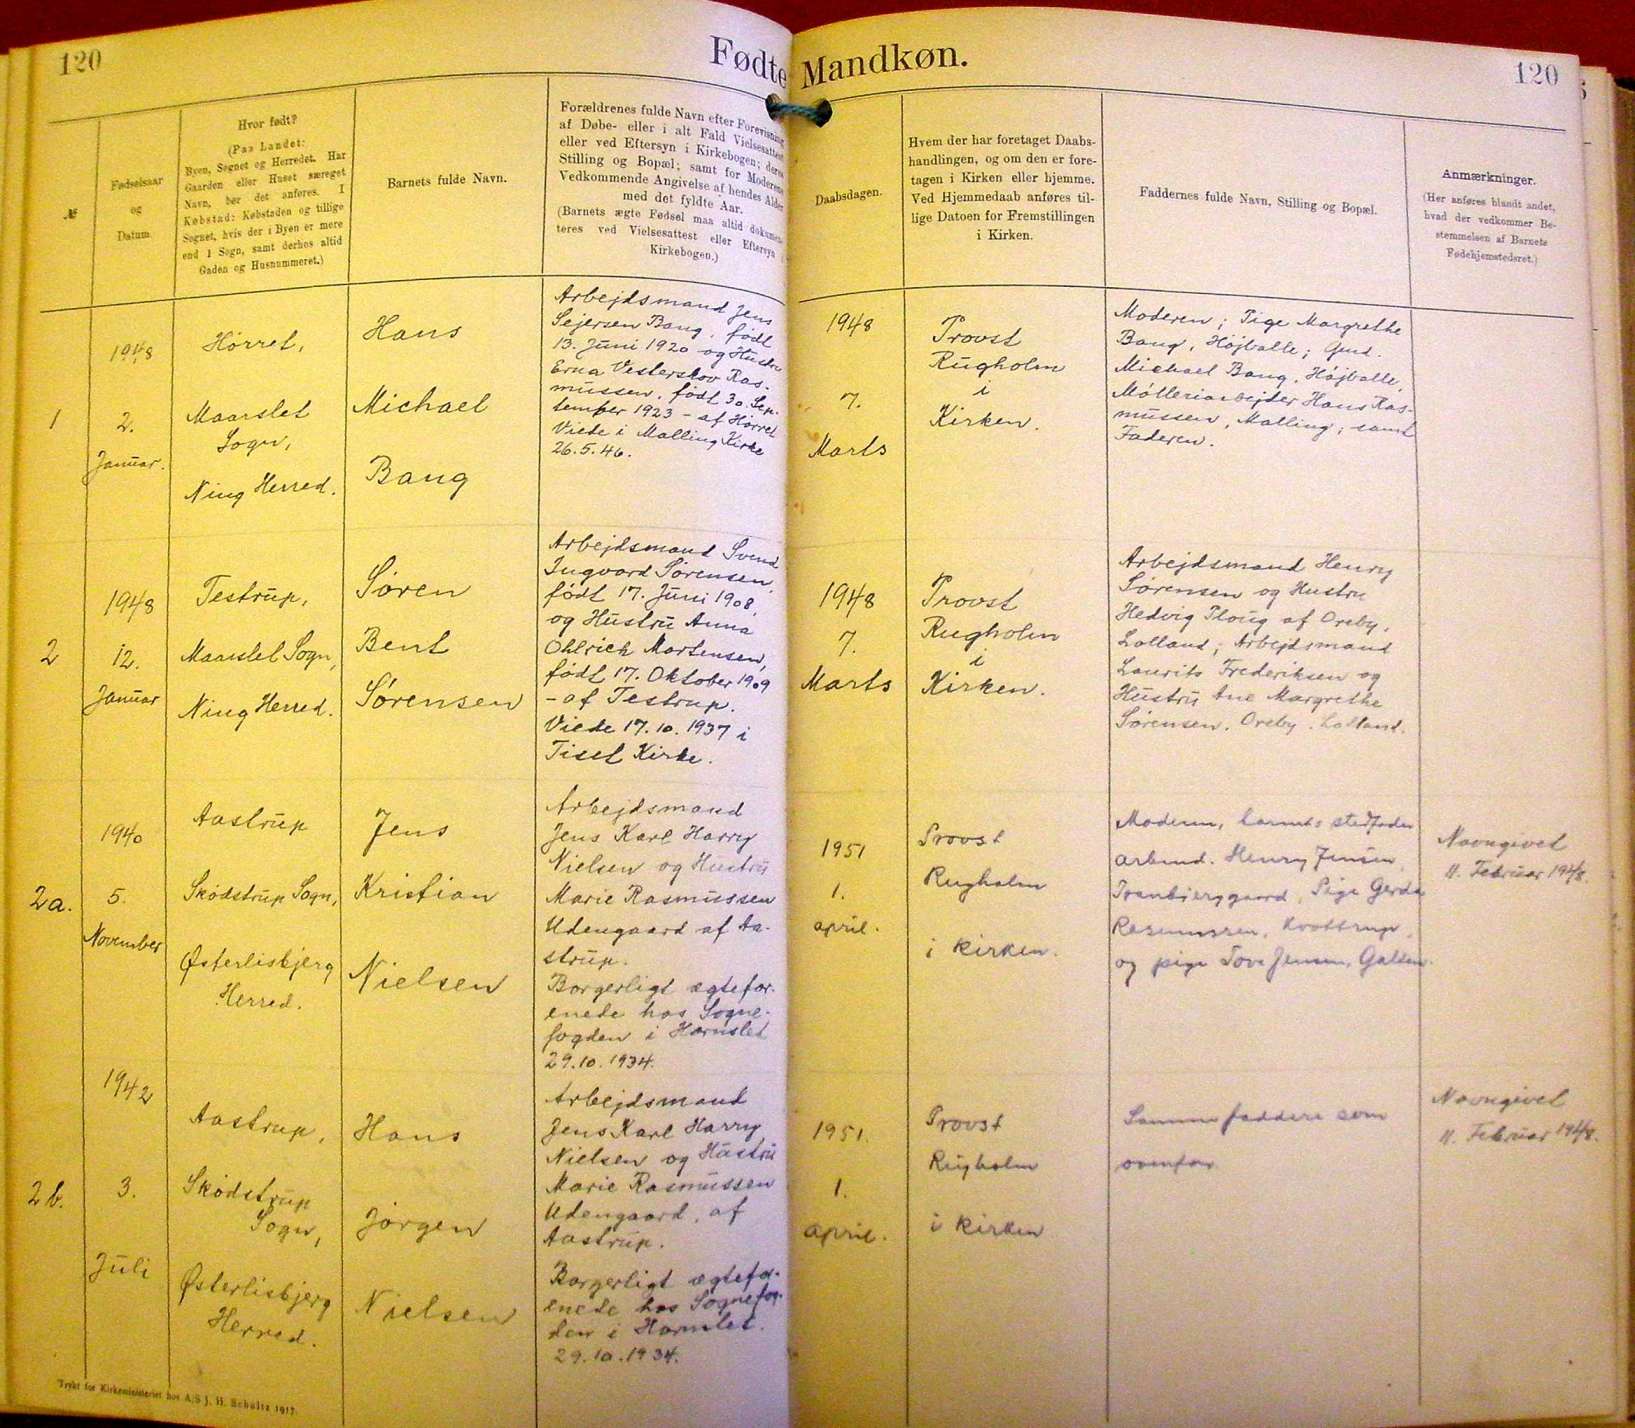 120
Fødte Mandkøn.
120
№
Fødselsaar
og
Datum
Hvor født?
(Paa Landet:
Byen, Sognet og Herredet. Har
Gaarden eller Huset særeget
Navn, bør det anføres. I
Købstad: Købstaden og tillige
Sognet, hvis der i Byen er mere
end 1 Sogn, samt derhos altid
Gaden og Husnummeret.)
Barnets fulde Navn.
Forældrenes fulde Navn efter Forevisning
af Døbe- eller i alt Fald Vielsesattest
eller ved Eftersyn i Kirkebogen; deres
Stilling og Bopæl; samt for Moderens
Vedkommende Angivelse af hendes Alder
med det fyldte Aar.
(Barnets ægte Fødsel maa altid dokumen-
teres ved Vielsesattest eller Eftersyn i
Kirkebogen.)
Daabsdagen.
Hvem der har foretaget Daabs-
handlingen, og om den er fore-
tagen i Kirken eller hjemme.
Ved Hjemmedaab anføres til-
lige Datoen for Fremstillingen
i Kirken.
Faddernes fulde Navn, Stilling og Bopæl.
Anmærkninger.
(Her anføres blandt andet,
hvad der vedkommer Be-
stemmelsen af Barnets
Fødehjemstedsret.)
1
1948
2.
Januar.
Hørret,
Maarslet
Sogn,
Ning Herred.
Hans
Michael
Bang
Arbejdsmand Jens
Sejersen Bang, født
13. Juni 1920 og Hustru
Erna Vesterskov Ras-
mussen, født 30. Sep-
tember 1923 - af Hørret
Viede i Malling Kirke
26.5.46.
1948
7.
Marts
Provst
Rugholm
i
Kirken.
Moderen; Pige Margrethe
Bang, Højballe; Gmd.
Michael Bang, Højballe,
Mølleriarbejder Hans Ras-
mussen, Malling; samt
Faderen.
2
1948
12.
Januar
Testrup,
Maarslet Sogn,
Ning Herred.
Søren
Bent
Sørensen
Arbejdsmand Svend
Ingvard Sørensen,
født 17. Juni 1908,
og Hustru Anna
Ohlrich Mortensen,
født 17. Oktober 1909
- af Testrup.
Viede 17.10.1937 i
Tiset Kirke.
1948
7.
Marts
Provst
Rugholm
i
Kirken.
Arbejdsmand Henry
Sørensen og Hustru
Hedvig Ploug af Oreby,
Lolland; Arbejdsmand
Laurits Frederiksen og
Hustru Ane Margrethe
Sørensen, Oreby, Lolland.
2a.
1940
5.
November
Aastrup
Skødstrup Sogn,
Østerlisbjerg
Herred.
Jens
Kristian
Nielsen
Arbejdsmand
Jens Karl Harry
Nielsen og Hustru
Marie Rasmussen
Udengaard af Aa-
strup.
Borgerligt ægtefor-
enede hos Sogne-
fogden i Hornslet
29.10.1934.
1951
1.
april.
Provst
Rugholm
i kirken.
Moderen, barnets stedfader
arbmd. Henry Jensen,
Pige Gerda
Rasmussen,
og pige Tove Jensen, Galten.
Navngivet
11. Februar 1948
2b.
1942
3.
Juli
Aastrup,
Skødstrup
Sogn,
Østerlisbjerg
Herred.
Hans
Jørgen
Nielsen
Arbejdsmand
Jens Karl Harry
Nielsen og Hustru
Marie Rasmussen
Udengaard, af
Aastrup.
Borgerligt ægtefor-
enede hos Sognefog-
den i Hornslet.
29.10.1934.
1951.
1.
april.
Provst
Rugholm
i kirken
Samme faddere som
ovenfor
Navngivet
11. Februar 1948.
Trykt for Kirkeministeriet hos A/S J. H. Schultz 1917.